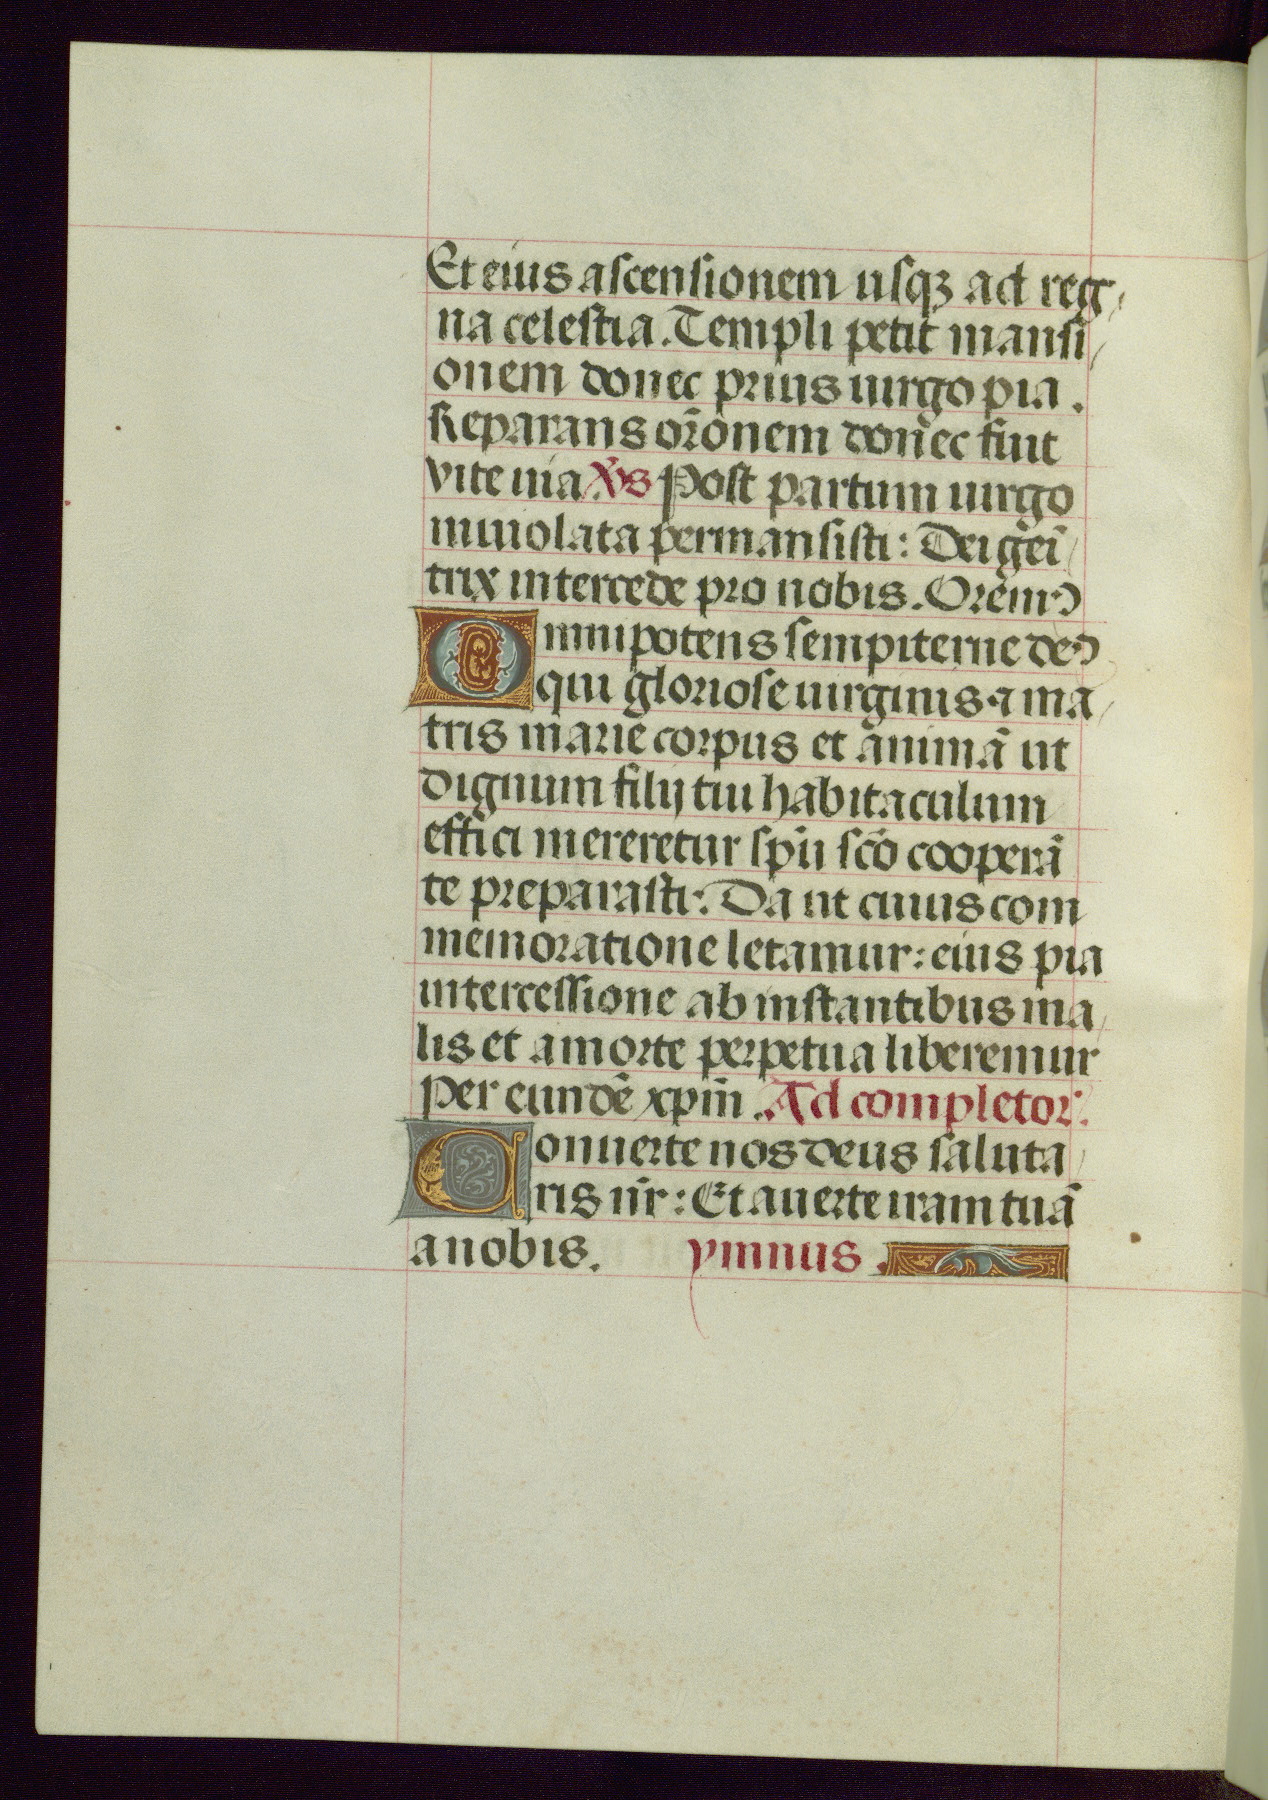 Et eius ascensionem usqꝫ ad reg
na celestia. Templi petit mansi
onem donec prius uirgo pia.
Reparans or̄onem donec fiut
vite uia. v̄s Post partum uirgo
inuiolata permansisti: Dei gēi
trix intercede pro nobis. Oremꝰ
Omnipotens sempiterne deꝰ
qui gloriose uirginis ⁊ ma
tris marie corpus et animā ut
dignum filij tui habitaculum
effici mereretur spū scō cooperā
te preparasti: Da ut cuius com
memoratione letamur: eius pia
intercessione ab instantibus ma
lis et a morte perpetua liberemur
Per eundē xpm̄. Ad completor.
Conuerte nos deus saluta
ris nr̄: Et auerte iram tuā
a nobis. ymnus.